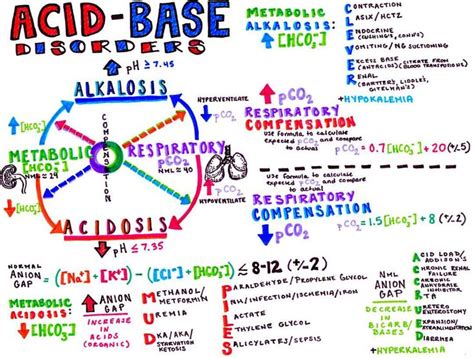 ACID-BASE
DISORDERS
↑ pH ≥ 7.45
ALKALOSIS
COMPENSATION
↑ [HCO3-]
METABOLIC
[HCO3-]
NML ≅ 24
↓ [HCO3-]
HYPERVENTILATE
↓ pCO2
RESPIRATORY
pCO2
NML ≅ 40
↑ pCO2
HYPOVENTILATE
ACIDOSIS
↓ pH ≤ 7.35
METABOLIC
ALKALOSIS:
↑ [HCO3-]
CONTRACTION
LASIX/HCTZ
ENDOCRINE
(CUSHING'S, CONN'S)
VOMITING/NG SUCTIONING
EXCESS BASE
(ANTACIDS) (CITRATE FROM
BLOOD TRANSFUSIONS)
RENAL
(BARTTER'S, LIDDLE'S,
GITELMAN'S)
+HYPOKALEMIA
↑ pCO2
RESPIRATORY
COMPENSATION
USE FORMULA TO CALCULATE
EXPECTED pCO2 AND COMPARE
TO ACTUAL
pCO2 = 0.7 [HCO3-] + 20 (+/- 5)
USE FORMULA TO CALCULATE
EXPECTED pCO2 AND COMPARE
TO ACTUAL
RESPIRATORY
COMPENSATION
↓ pCO2
pCO2 = 1.5 [HCO3-] + 8 (+/- 2)
NORMAL
ANION
GAP
= ([Na+] + [K+]) - ([Cl-] + [HCO3-]) ≤ 8-12 (+/- 2)
METABOLIC
ACIDOSIS:
↓ [HCO3-]
↑ ANION
GAP
INCREASE
IN ACIDS
(ORGANIC)
METHANOL/
METFORMIN
UREMIA
DKA/AKA/
STARVATION
KETOSIS
PARALDEHYDE/PROPYLENE GLYCOL
INH/INFECTION/ISCHEMIA/IRON
LACTATE
ETHYLENE GLYCOL
SALICYLATES
NML ANION
GAP
DECREASE
IN
BICARB/
BASES
ACID LOAD/
ADDISON'S
CHRONIC RENAL
FAILURE
CARBONIC
ANHYDRASE
INHIBITOR
RTA
URETERO
ENTEROSTOMY
EXPANSION/
EXTRA ALIMENTATION
DIARRHEA
+HYPERKALEMIA